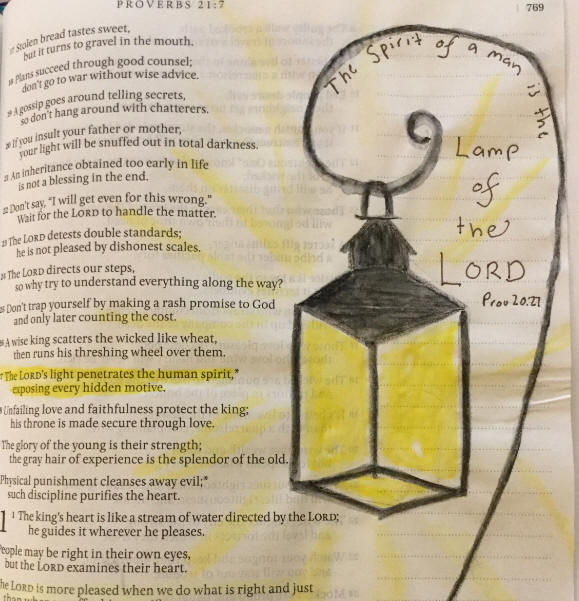 PROVERBS 21:7
769
17 Stolen bread tastes sweet,
but it turns to gravel in the mouth.
18 Plans succeed through good counsel;
don't go to war without wise advice.
19 A gossip goes around telling secrets,
so don't hang around with chatterers.
20 If you insult your father or mother,
your light will be snuffed out in total darkness.
21 An inheritance obtained too early in life
is not a blessing in the end.
22 Don't say, "I will get even for this wrong."
Wait for the LORD to handle the matter.
23 The LORD detests double standards;
he is not pleased by dishonest scales.
24 The LORD directs our steps,
so why try to understand everything along the way?
25 Don't trap yourself by making a rash promise to God
and only later counting the cost.
26 A wise king scatters the wicked like wheat,
then runs his threshing wheel over them.
27 The LORD's light penetrates the human spirit,*
exposing every hidden motive.
Unfailing love and faithfulness protect the king;
his throne is made secure through love.
The glory of the young is their strength;
the gray hair of experience is the splendor of the old.
Physical punishment cleanses away evil;*
such discipline purifies the heart.
1 1 The king's heart is like a stream of water directed by the LORD;
he guides it wherever he pleases.
People may be right in their own eyes,
but the LORD examines their heart.
The LORD is more pleased when we do what is right and just
The Spirit of a man is the
Lamp
of
the
LORD
Prov 20:27